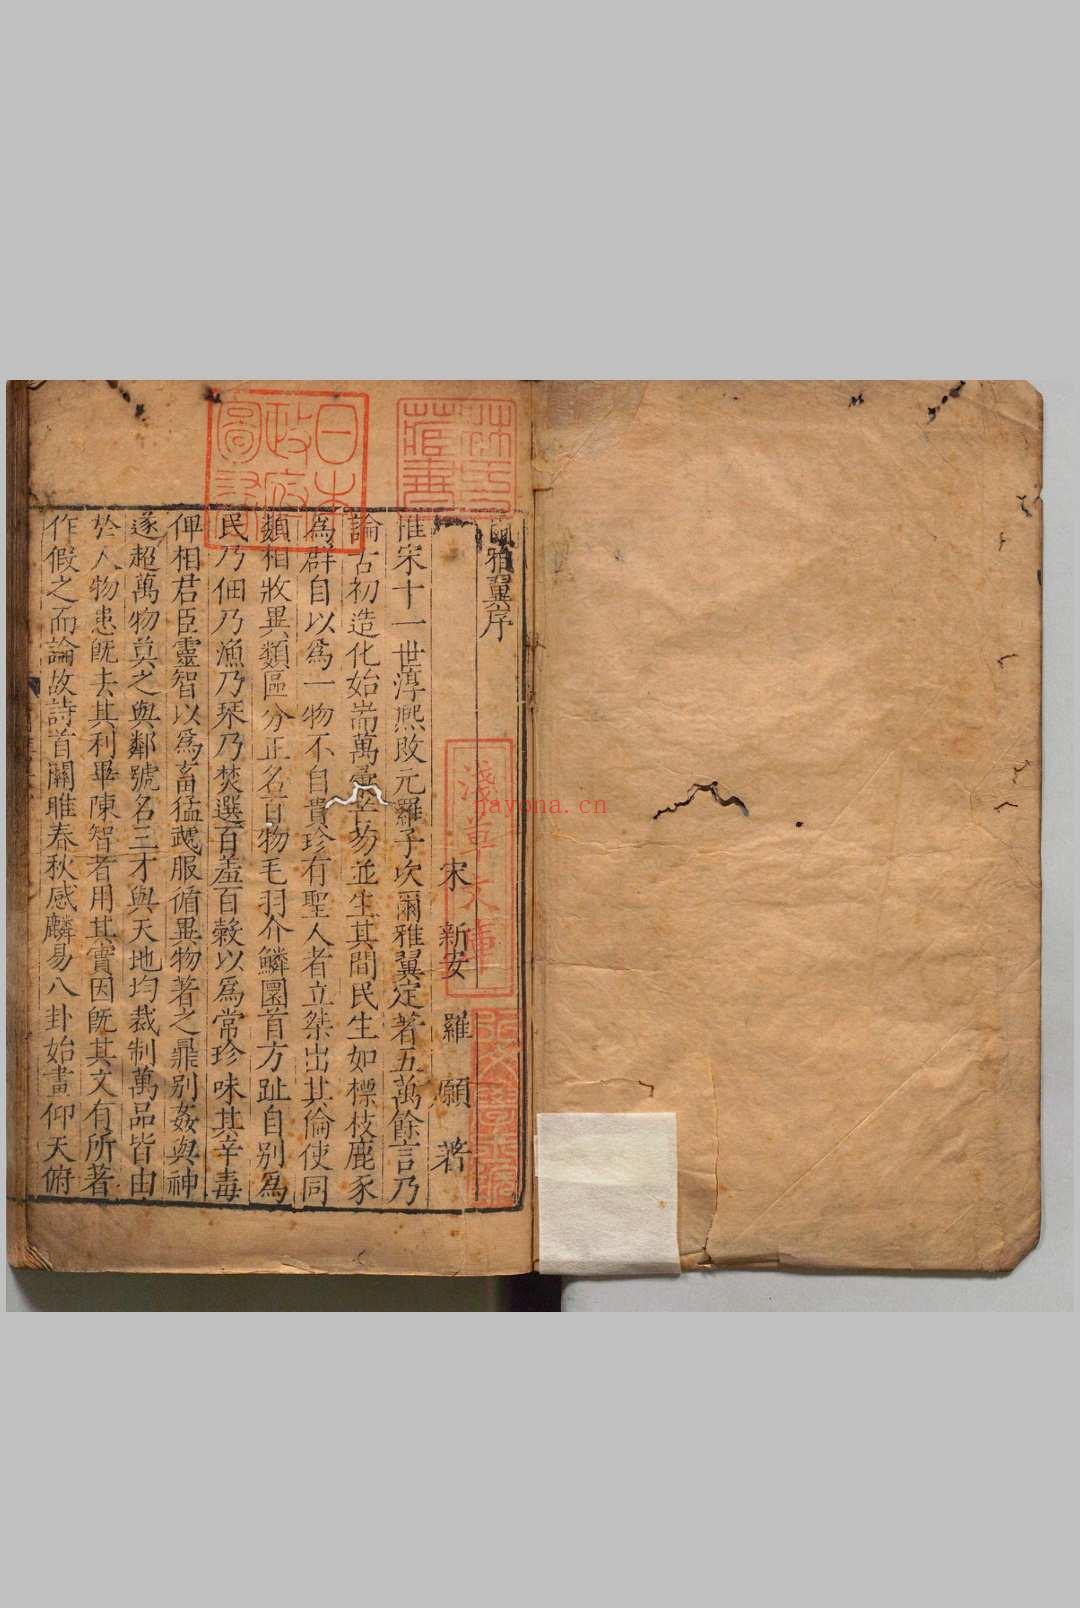 爾雅翼序
宋 新安 羅 願 著
惟宋十一世淳熙改元羅子次爾雅翼定著五萬餘言乃
論古初造化始耑萬彙芒芴並生其間民生如標枝鹿豕
爲群自以爲一物不自貴珍有聖人者立桀出其倫使同
類相牧異類區分正名百物毛羽介鱗圓首方趾自別爲
民乃佃乃漁乃琹乃焚選百羞百穀以爲常珍味其辛毒
俾相君臣靈智以爲畜猛䖈服循異物著之鼎别姦與神
遂超萬物莫之與鄰號名三才與天地均裁制萬品皆由
於人物患旣去其利畢陳智者用其實因旣其文有所著
作假之而論故詩首關雎春秋感麟易八卦始畫仰天俯
日本
政府
圖書
林氏
藏書
淺草文庫
jayona.cn